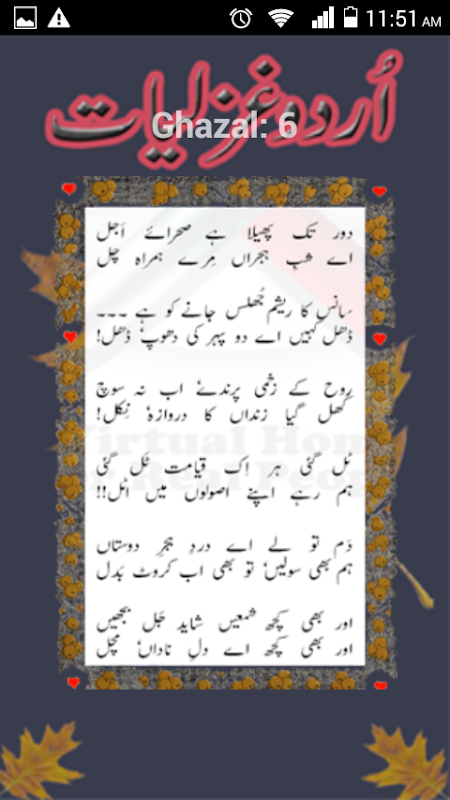 11:51 AM
اُردو غزلیات
Ghazal: 6
دور تک پھیلا ہے صحرائے اَجل
اے شبِ ہجراں مِرے ہمراہ چل
سانس کا ریشم جُھلس جانے کو ہے ۔۔۔
ڈھل کہیں اے دو پہر کی دھوپ ڈھل!
رُوح کے زخمی پرندے اب نہ سوچ
کُھل گیا زنداں کا دروازہ نِکل!
ٹل گئی ہر اِک قیامت ٹل گئی
ہم رہے اپنے اصولوں میں اٹل!!
دَم تو لے اے دردِ ہجرِ دوستاں
ہم بھی سولیں تو بھی اب کروٹ بَدل
اور بھی کچھ شمعیں شاید جَل بجھیں
اور بھی کچھ اے دلِ ناداں مچل
Virtual Hom
or Real Peop